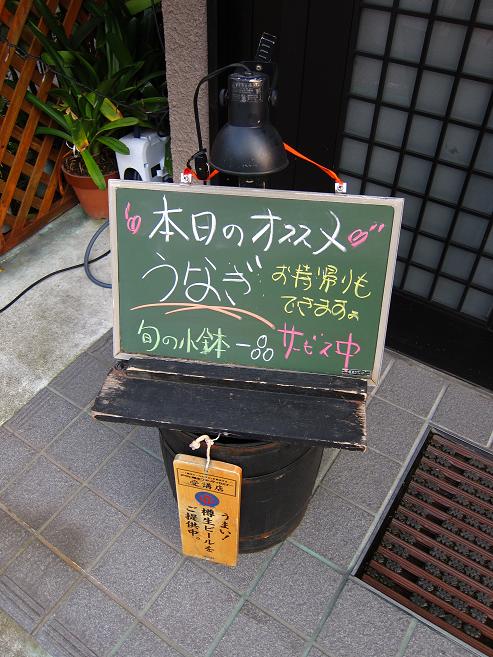 本日のオススメ
うなぎ
お持帰りも
できますよ
旬の小鉢一品
サービス中
受講店
うまい！
樽生ビールを
ご提供中。